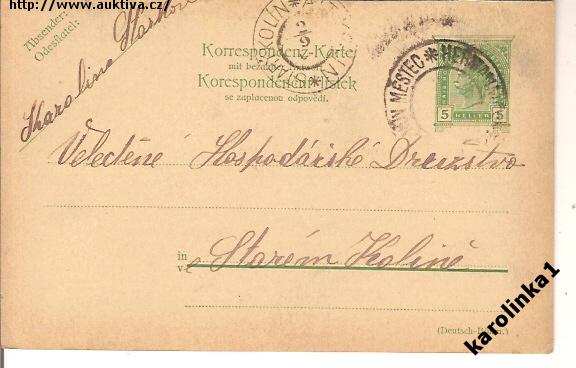 www.auktiva.cz
Absender:
Odesílatel:
Karoline
Korrespondenz-Karte
mit bezahlter Antwort.
Korespondenční lístek
se zaplacenou odpovědí.
HEŘMAN MĚSTEC * HEŘMANM
5 HELLER 5
Velectěné Hospodářské Druzstvo
in
v
Starém Kolíně
(Deutsch-Böhm.)
karolinka1